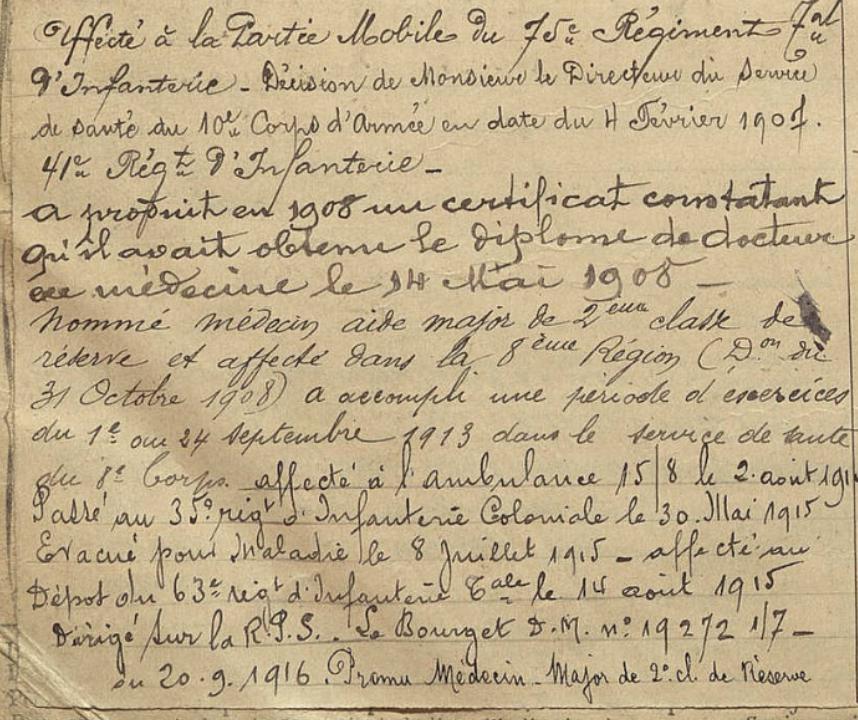 Affecté à la Partie Mobile du 75e Régiment Tal
d'Infanterie - Décision de Monsieur le Directeur du Service
de santé du 10e Corps d'Armée en date du 4 Février 1907.
41e Régt d'Infanterie -
a produit en 1908 un certificat constatant
qu'il avait obtenu le diplome de docteur
en médecine le 14 Mai 1908 -
Nommé médecin aide major de 2ème classe de
réserve et affecté dans la 8ème Région (Don du
31 Octobre 1908) a accompli une période d'exercices
du 1e au 24 Septembre 1913 dans le service de santé
du 8e Corps. affecté à l'ambulance 15/8 le 2 août 191
Passé au 35e régt d'Infanterie Coloniale le 30 Mai 1915
Evacué pour Maladie le 8 Juillet 1915 - affecté au
Dépot du 63e régt d'Infanterie Tale le 14 août 1915
Dirigé sur la R.P.S. - Le Bourget D.M. no 19272 1/7 -
du 20.9.1916. Promu Médecin-Major de 2e cl. de Réserve